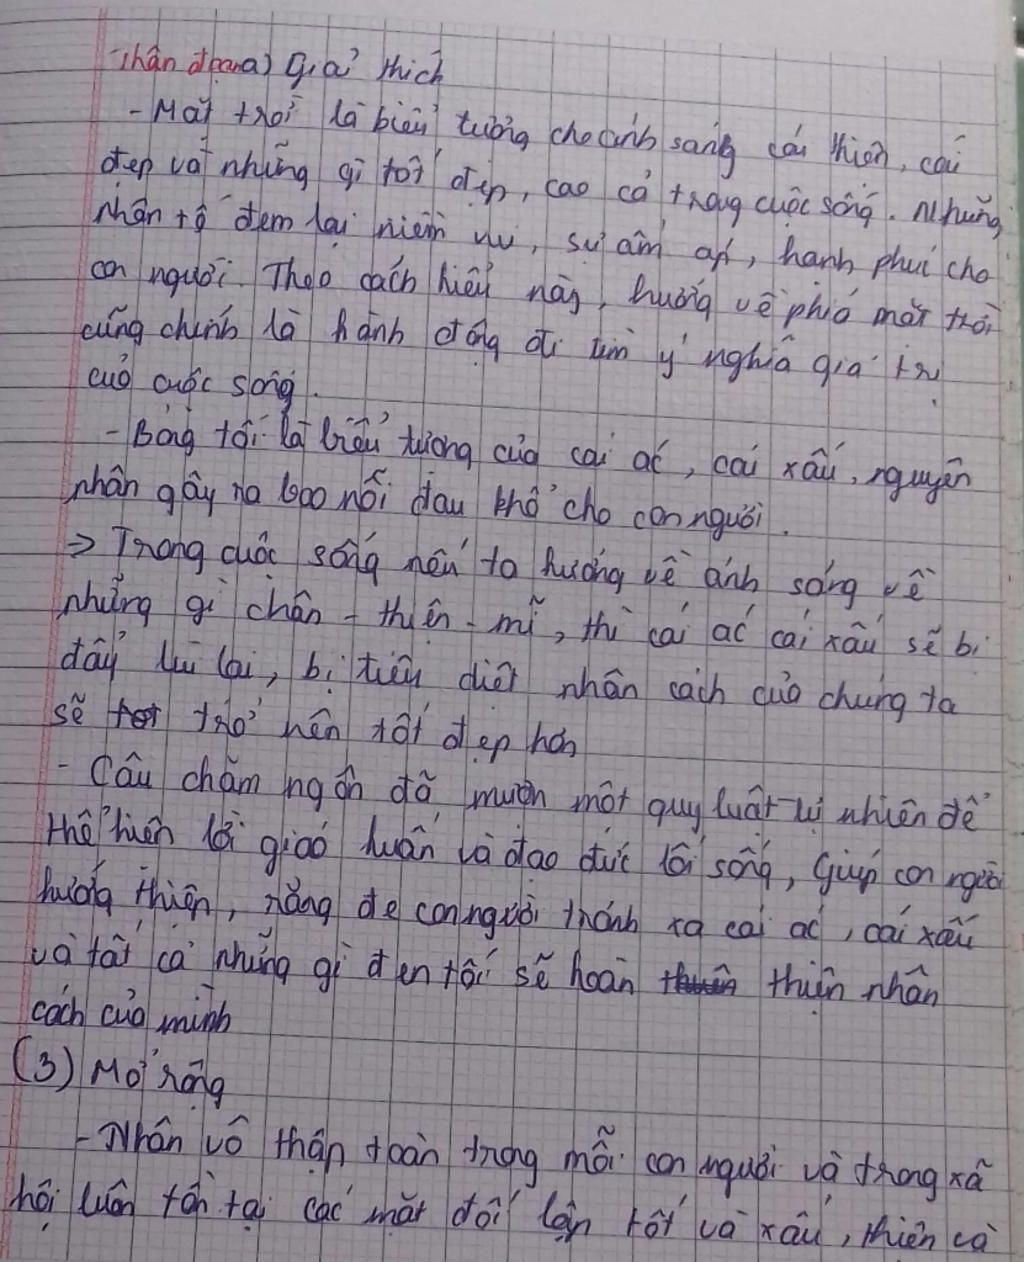 Thân đoạn a) Giải thích
- Mặt trời là biểu tượng cho ánh sáng cái thiện, cái
đẹp và những gì tốt đẹp, cao cả trong cuộc sống. Những
nhân tố đem lại niềm vui, sự ấm áp, hạnh phúc cho
con người. Theo cách hiểu này, hướng về phía mặt trời
cũng chính là hành động đi tìm ý nghĩa giá trị
của cuộc sống.
- Bóng tối là biểu tượng của cái ác, cái xấu, nguyên
nhân gây ra bao nỗi đau khổ cho con người.
=> Trong cuộc sống nếu ta hướng về ánh sáng về
những gì chân - thiện - mĩ, thì cái ác cái xấu sẽ bị
đẩy lùi lại, bị tiêu diệt nhân cách của chúng ta
sẽ trở nên tốt đẹp hơn
- Câu châm ngôn đã mượn một quy luật tự nhiên để
thể hiện lời giáo huấn và đạo đức lối sống, giúp con người
hướng thiện, răng đe con người tránh xa cái ác, cái xấu
và tất cả những gì đen tối sẽ hoàn thiện nhân
cách của mình
(3) Mở rộng
- Nhân vô thập toàn trong mỗi con người và trong xã
hội luôn tồn tại các mặt đối lập tốt và xấu, thiện và